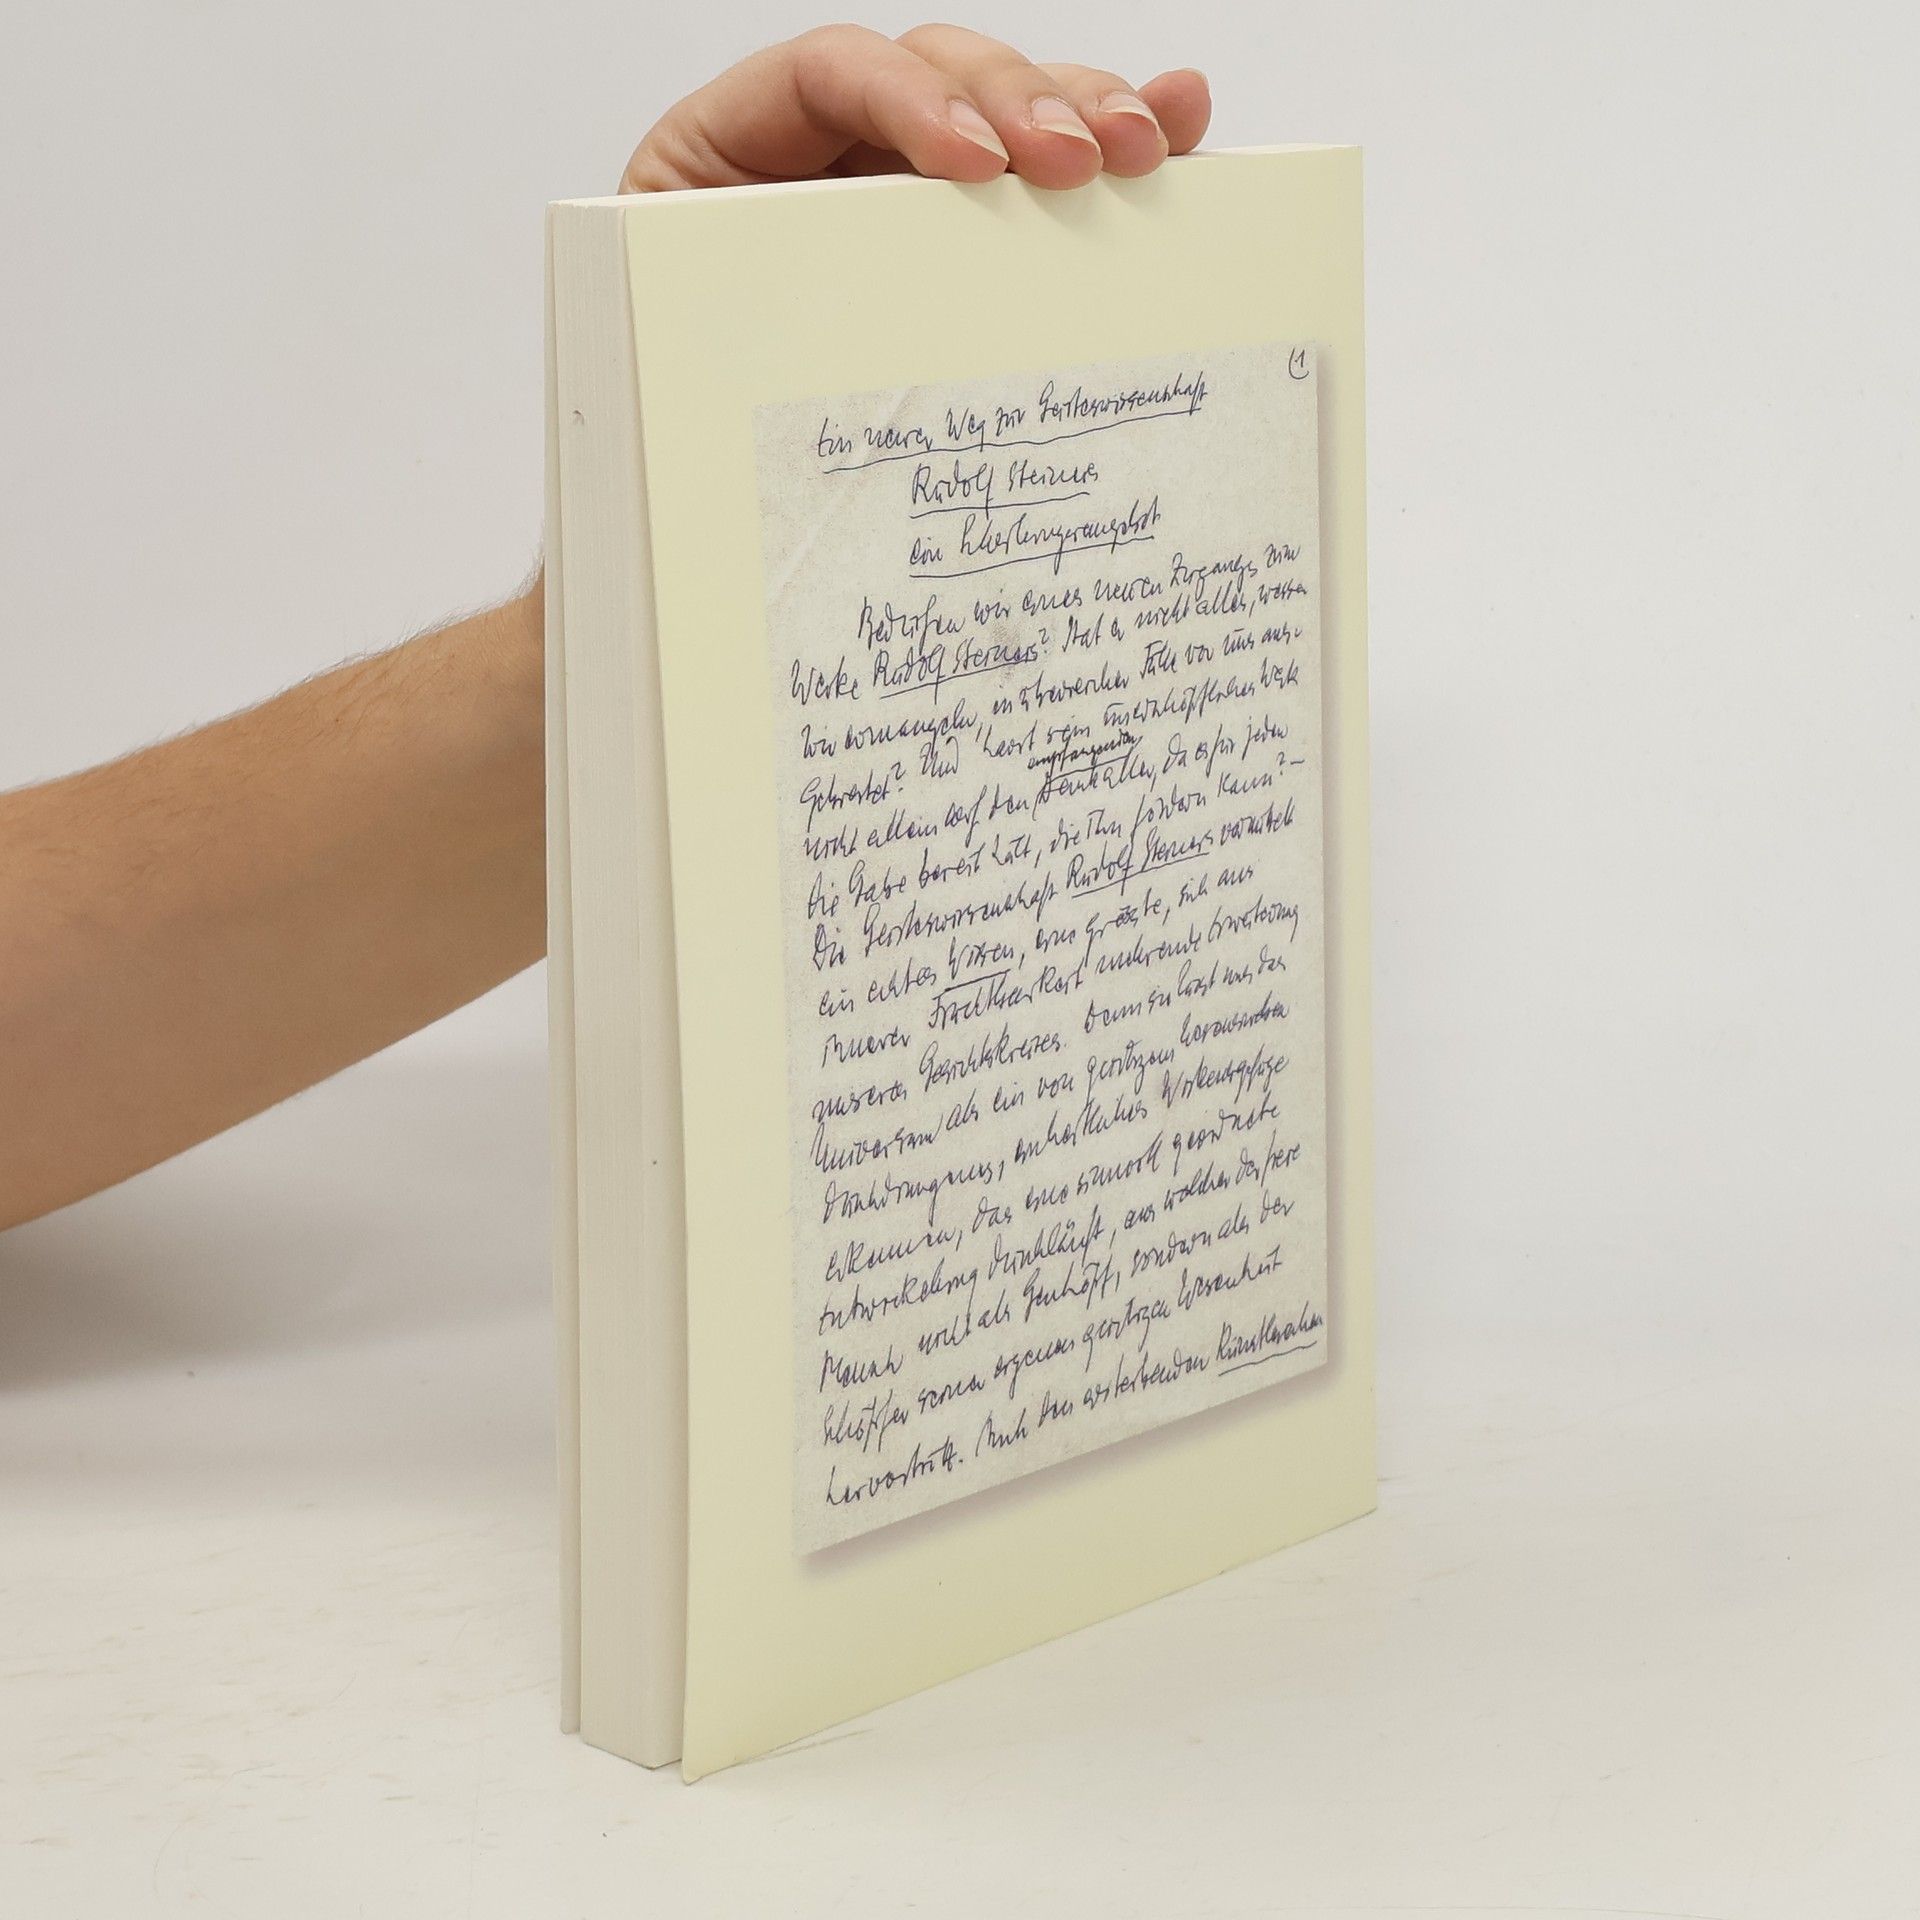 (1
Ein neuer Weg zur Geisteswissenschaft
Rudolf Steiners
ein Schulungsangebot
Bedürfen wir eines neuen Zuganges zum
Werke Rudolf Steiners? Hat er nicht alles, wessen
wir ermangeln, in überreicher Fülle vor uns aus-
gebreitet? Und harrt sein unerschöpfliches Werk
empfangenden
nicht allein auf den Dank aller, da es für jeden
die Gabe bereit hält, die ihn fördern kann? –
Die Geisteswissenschaft Rudolf Steiners vermittelt
ein echtes Wissen, eine grösste, sich aus
innerer Fruchtbarkeit mehrende Erweiterung
unseres Gesichtskreises. Denn sie lässt uns das
Universum als ein von geistigem
durchdrungenes, einheitliches Wirkensgefüge
erkennen, das eine sinnvoll geordnete
Entwickelung durchläuft, aus welcher der freie
Mensch nicht als Geschöpf, sondern als der
Schöpfer seiner eigenen geistigen Wesenheit
hervortritt. Auch den